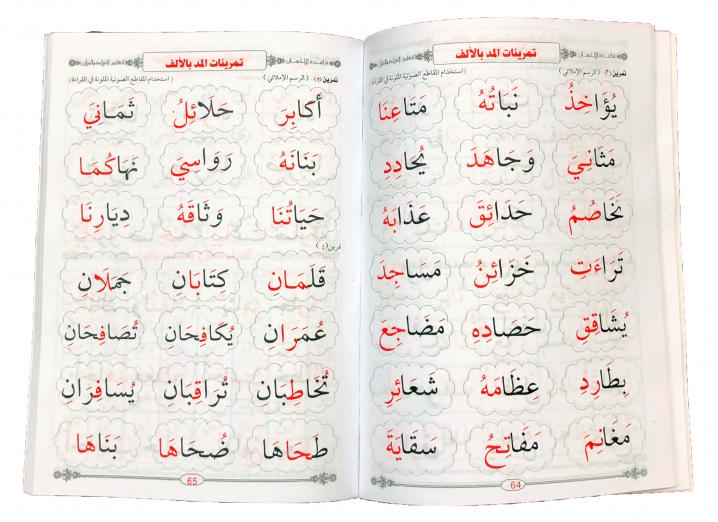 قاعدة الإخلاص
تمرينات المد بالألف
لتعليم القراءة والقرآن
تمرين (٣) (الرسم الإملائي) (استخدام المقاطع الصوتية الملونة في القراءة)
يُؤَاخِذُ نَبَاتُهُ مَتَاعِنَا
مَثَانِيَ وَجَاهَدَ يُحَادِدِ
تَخَاصُمُ حَدَائِقَ عَذَابَهُ
تَرَاءَتِ خَزَائِنُ مَسَاجِدَ
يُشَاقِقِ حَصَادِهِ مَضَاجِعَ
بِطَارِدِ عِظَامَهُ شَعَائِرِ
مَغَانِمَ مَفَاتِحُ سِقَايَةَ
64
تمرينات المد بالألف
تمرين (٣) (الرسم الإملائي) (استخدام المقاطع الصوتية الملونة في القراءة)
أَكَابِرَ حَلَائِلُ ثَمَانِيَ
بَنَانَهُ رَوَاسِيَ نَهَاكُمَا
حَيَاتُنَا وَثَاقَهُ دِيَارِنَا
تمرين (٤)
قَلَمَانِ كِتَابَانِ جَمَلَانِ
عُمَرَانِ يُكَافِحَانِ تُصَافِحَانِ
تُخَاطِبَانِ تُرَاقِبَانِ يُسَافِرَانِ
طَحَاهَا ضُحَاهَا بَنَاهَا
65